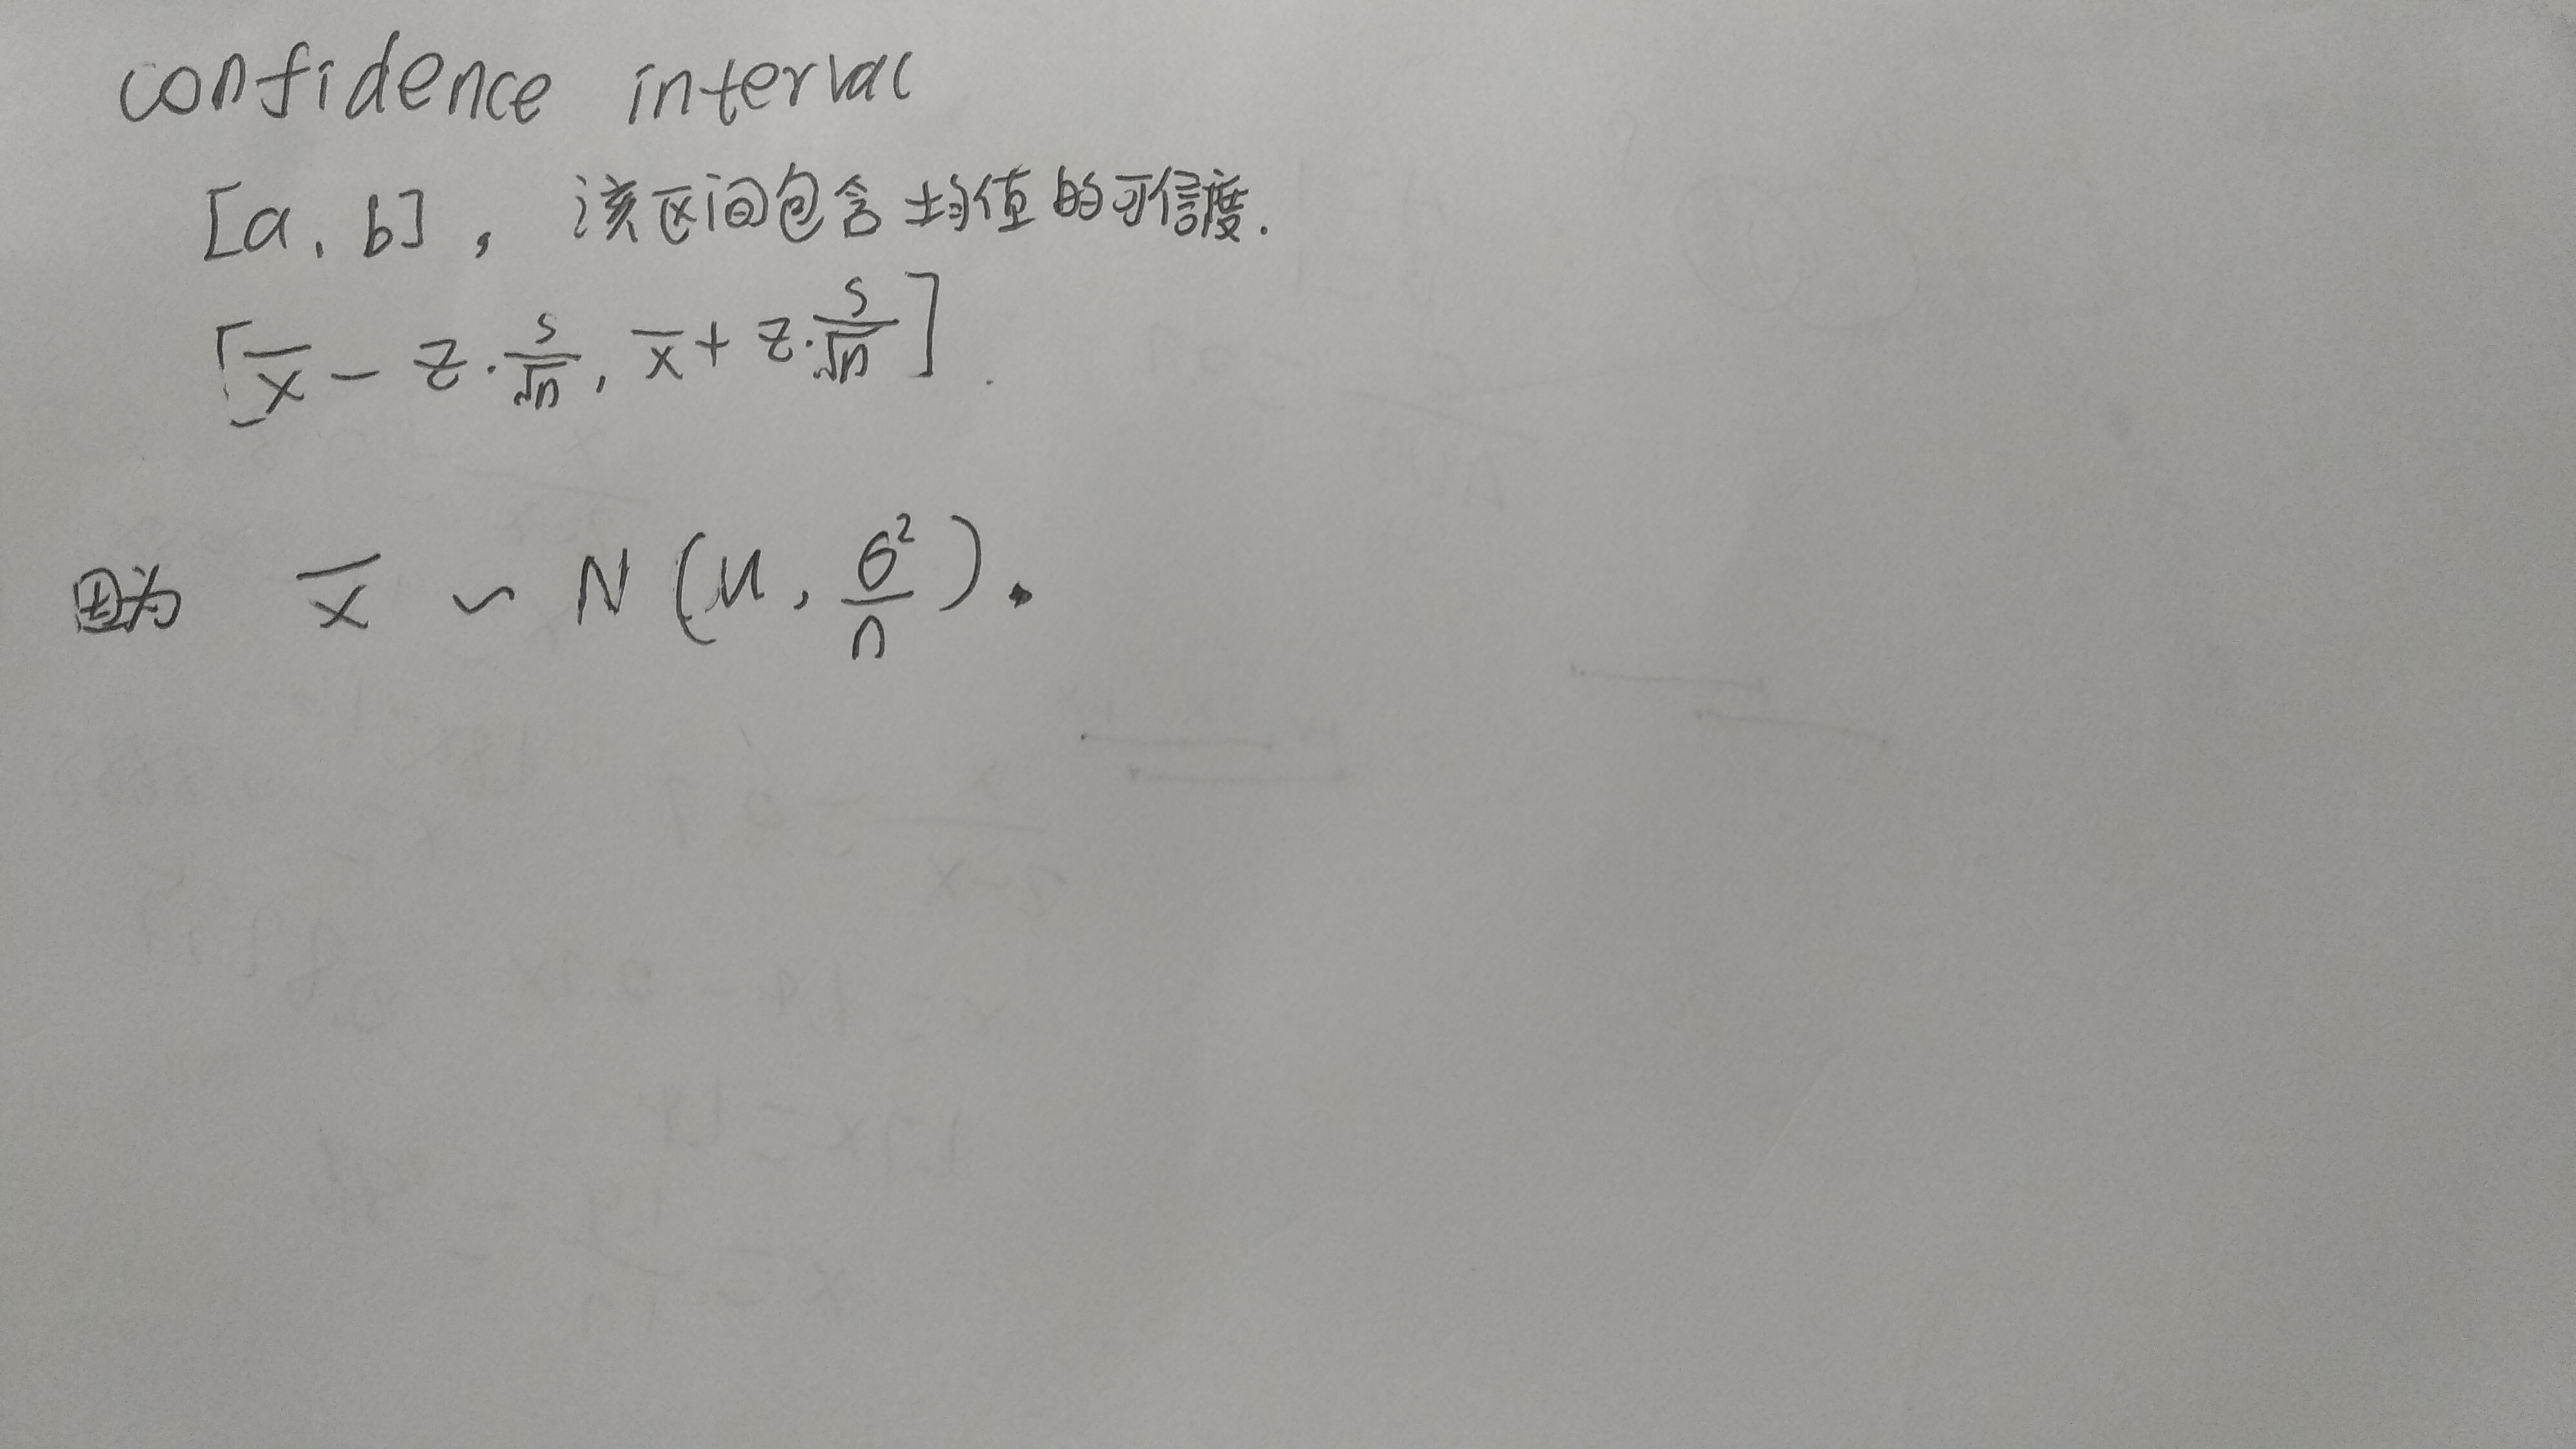 confidence interval
[a, b], 该区间包含均值的可信度.
[x̅ - z·s/√n, x̅ + z·s/√n].
因为 x̅ ~ N(μ, σ²/n).